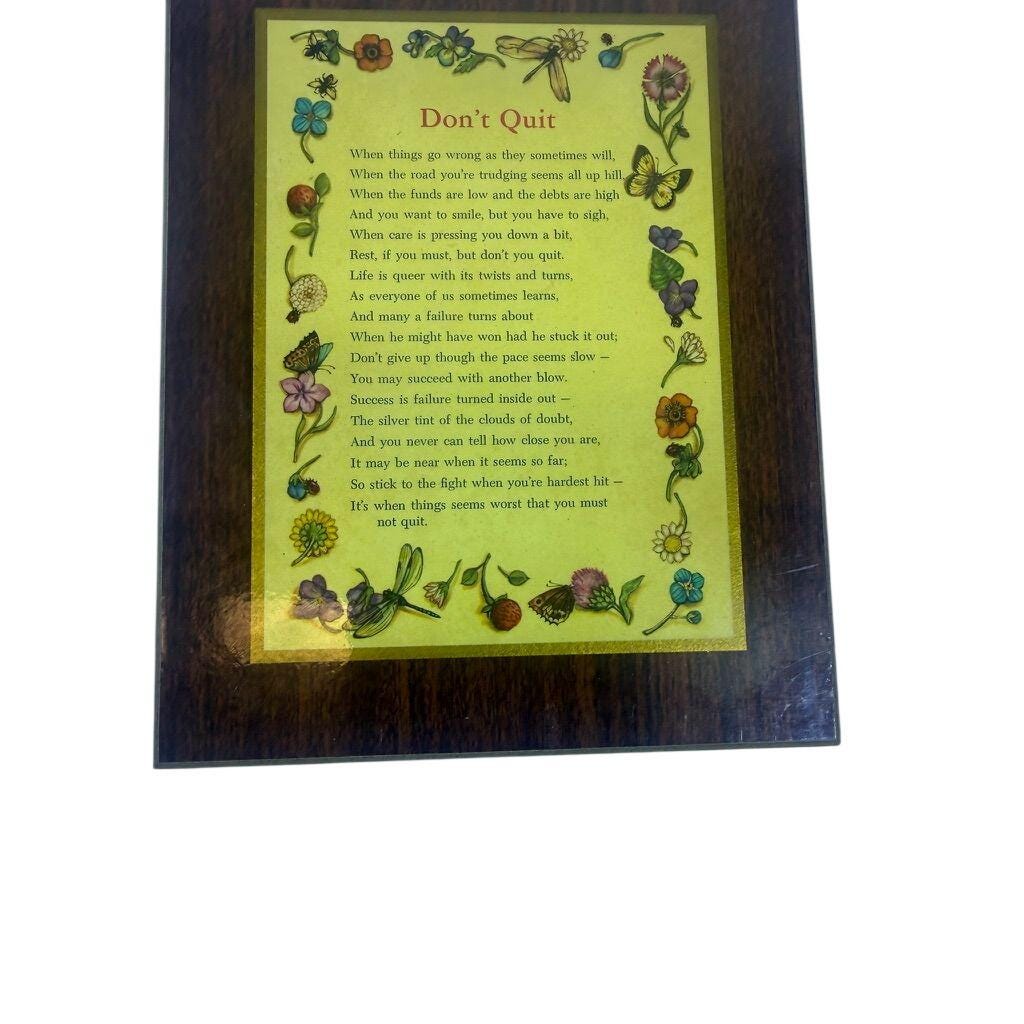 Don't Quit
When things go wrong as they sometimes will,
When the road you're trudging seems all up hill,
When the funds are low and the debts are high
And you want to smile, but you have to sigh,
When care is pressing you down a bit,
Rest, if you must, but don't you quit.
Life is queer with its twists and turns,
As everyone of us sometimes learns,
And many a failure turns about
When he might have won had he stuck it out;
Don't give up though the pace seems slow —
You may succeed with another blow.
Success is failure turned inside out —
The silver tint of the clouds of doubt,
And you never can tell how close you are,
It may be near when it seems so far;
So stick to the fight when you're hardest hit —
It's when things seems worst that you must
not quit.